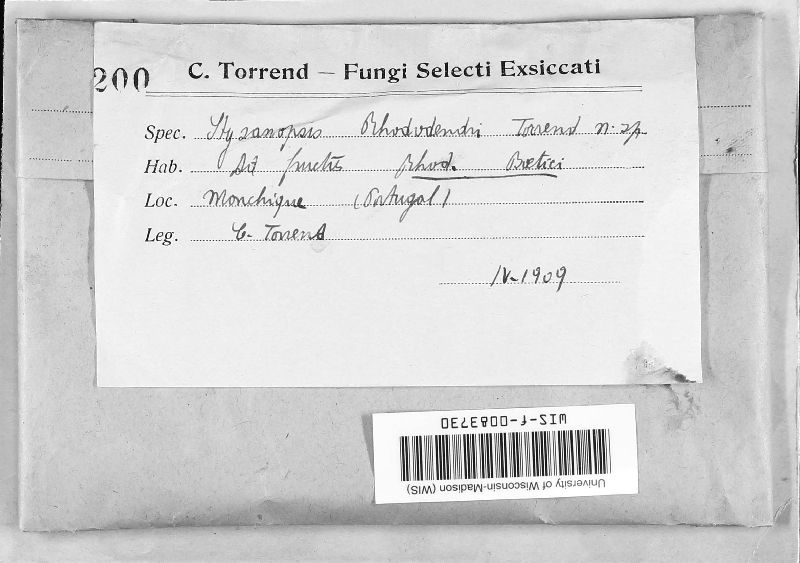 200 C. Torrend — Fungi Selecti Exsiccati
Spec. Stysanopsis Rhododendri Torrend n. sp.
Hab. Ad fructus Rhod. Bœtici
Loc. Monchique (Portugal)
Leg. C. Torrend
IV-1909
WIS-f-0083730
University of Wisconsin-Madison (WIS)